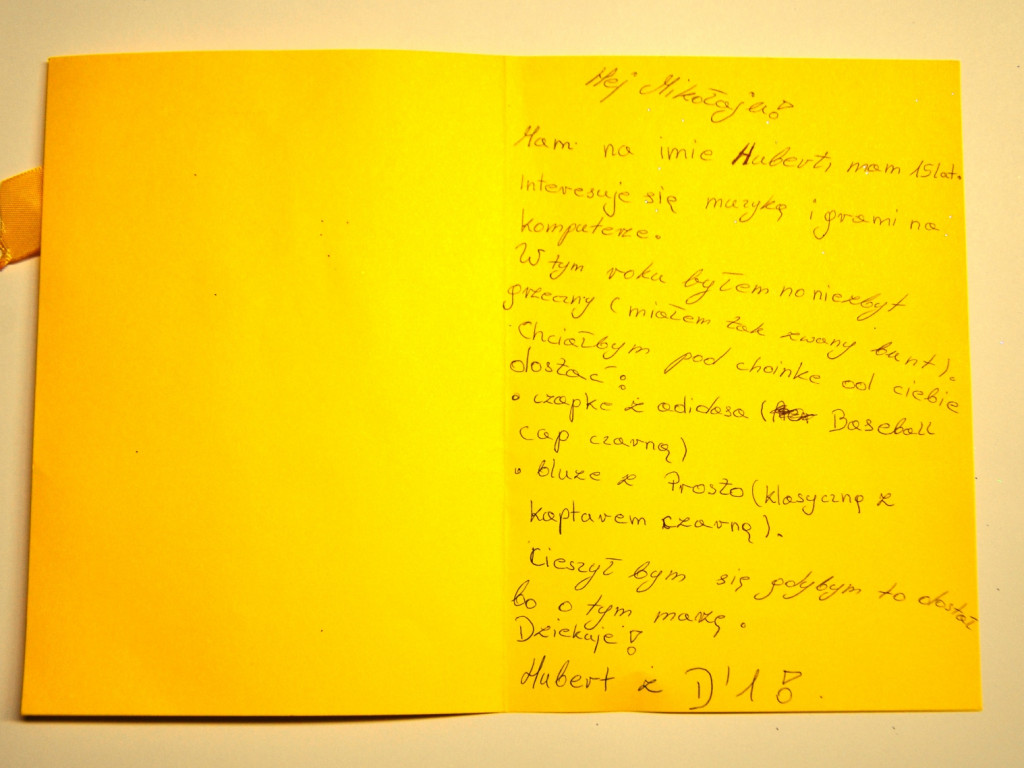 Hej Mikołaju!
Mam na imie Hubert, mam 15 lat.
Interesuje się muzyką i grami na
komputerze.
W tym roku byłem no niezbyt
grzeczny (miałem tak zwany bunt).
Chciałbym pod choinke od ciebie
dostać:
• czapke z adidasa (Baseball
cap czarną)
• bluze z Prosto (klasyczną z
kapturem czarną).
Cieszył bym się gdybym to dostał
bo o tym marzę.
Dziekuje!
Hubert z D'1!